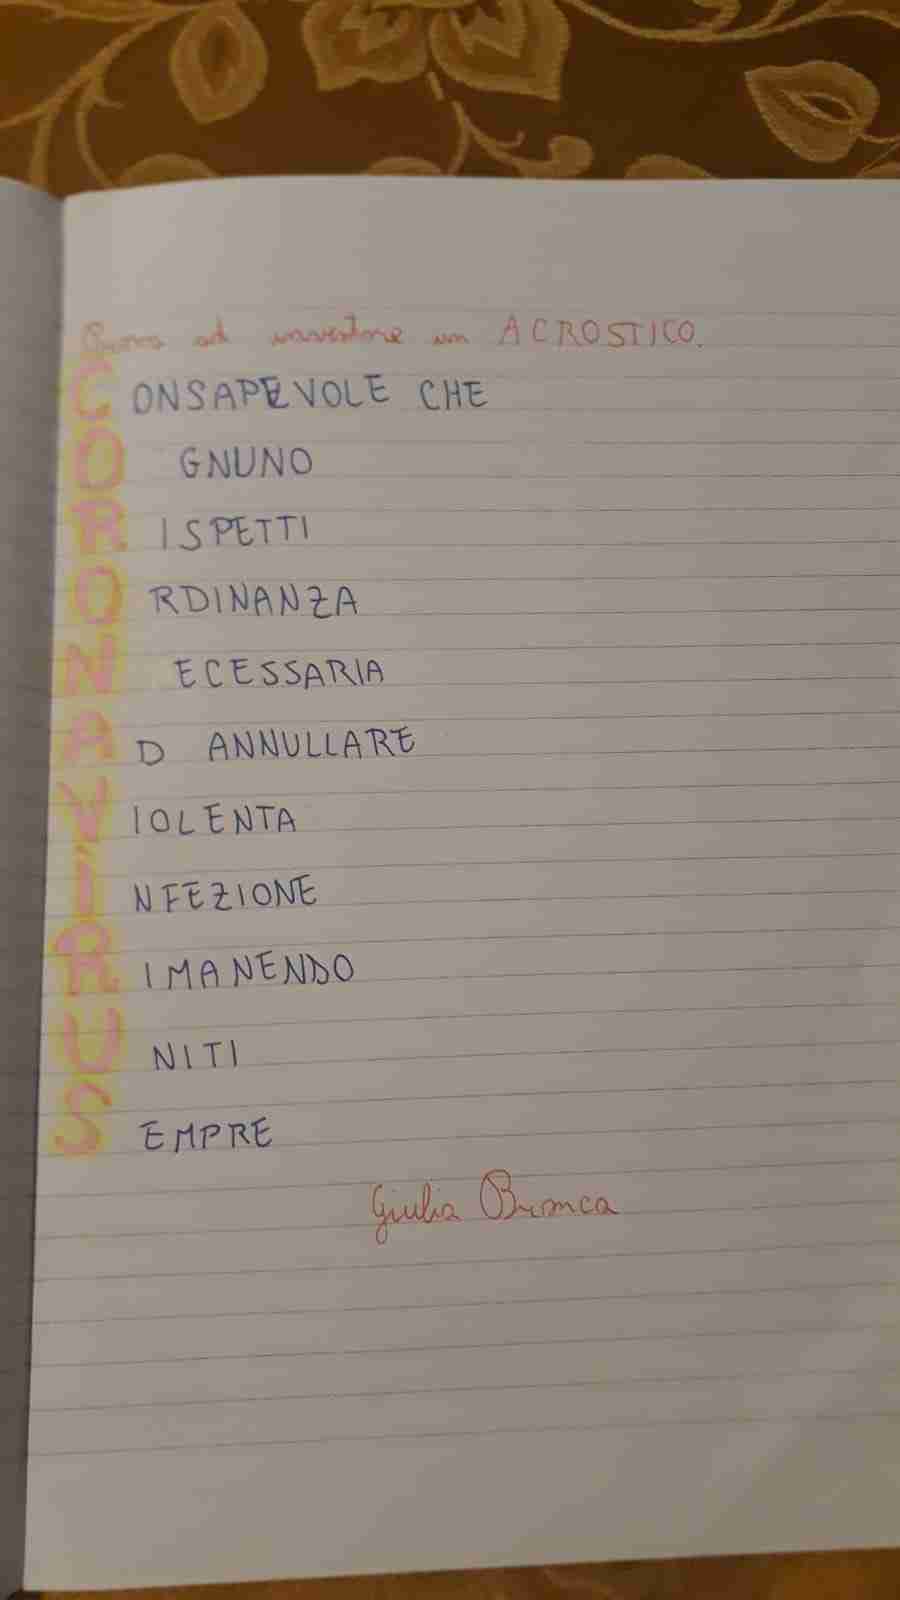 Prova ad inventare un ACROSTICO.
CONSAPEVOLE CHE
OGNUNO
RISPETTI
ORDINANZA
NECESSARIA
AD ANNULLARE
VIOLENTA
INFEZIONE
RIMANENDO
UNITI
SEMPRE
Giulia Branca